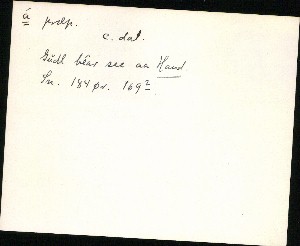 á præp.
c. dat.
Guðl bear see aa Hand
Sn. 184 pr. 169²